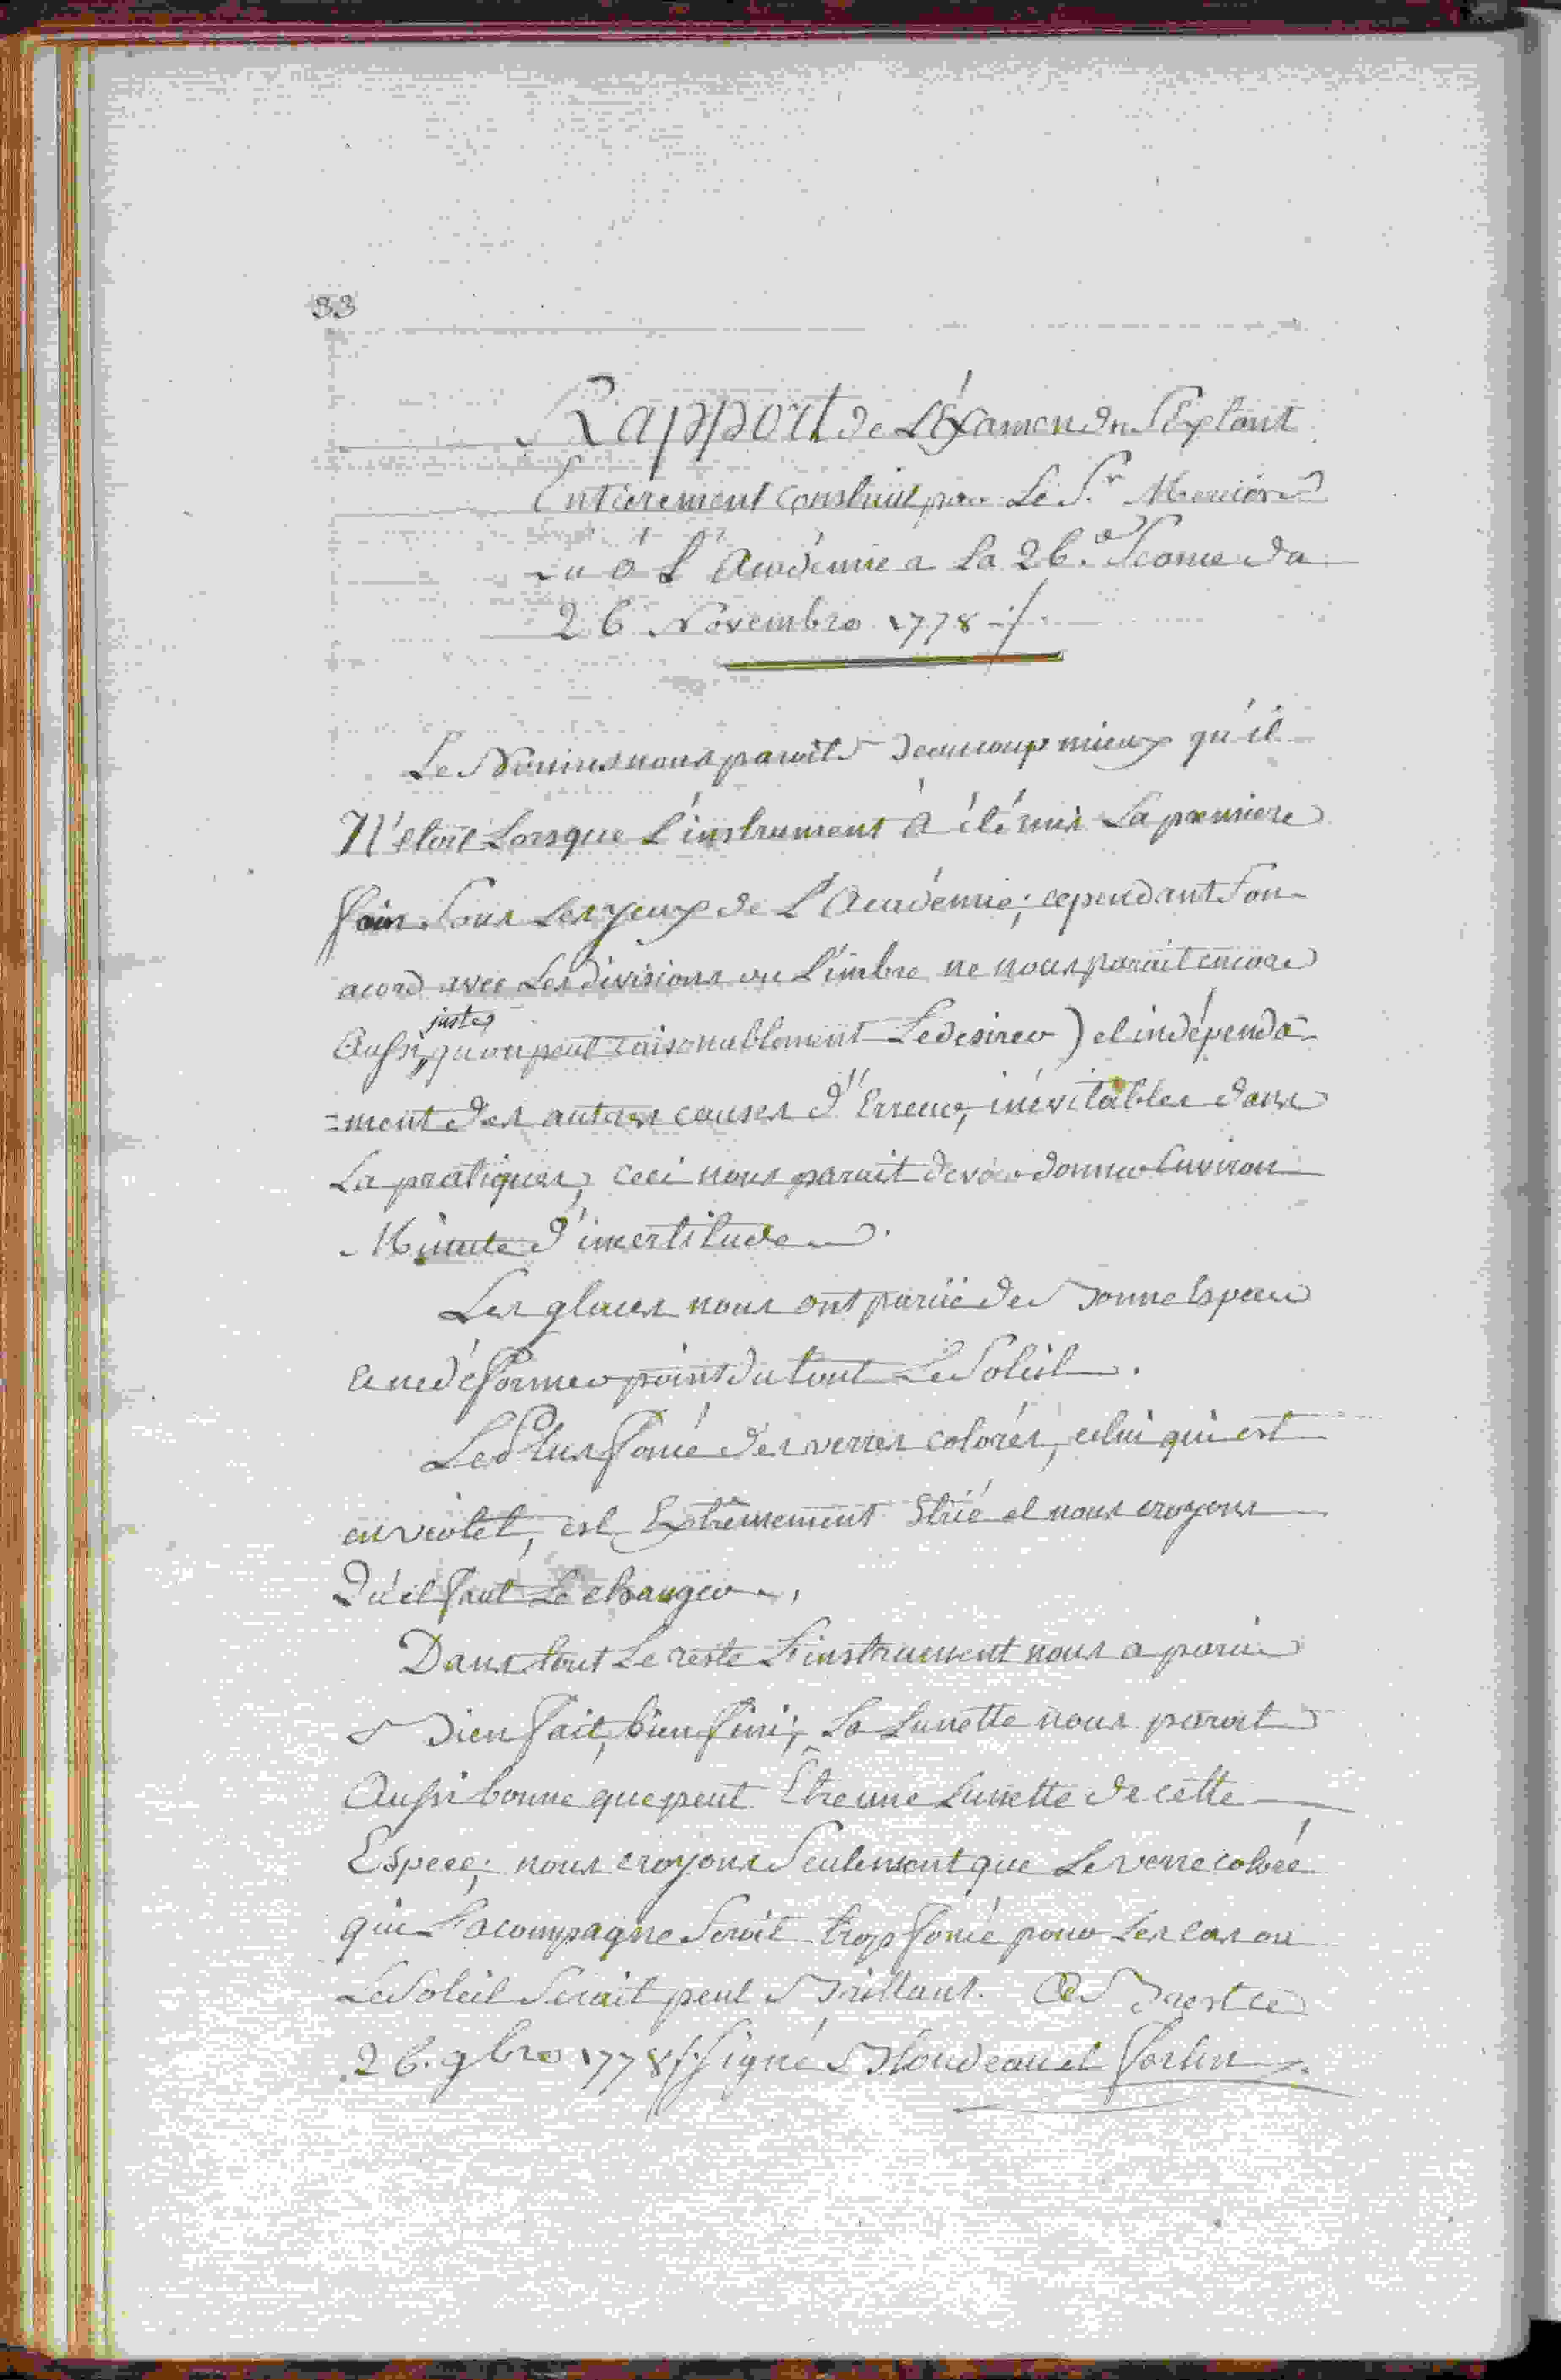 33
Rapport de L'Examen du Sextant
Entierement Construit par Le S.r Mercier
Lu à L'Académie a La 26.e Seance du
26 Novembre 1778 ./.
Le Nonius nous paroît beaucoup mieux qu'il
N'étoit Lorsque L'instrument à été mis La premiere
fois Sous Les yeux de L'Académie; cependant Son
acord avec Les divisions ou Limbre ne nous parait encore
Aussi juste qu'on peut raisonnablement Le desirer ) et indépenda-
=ment des autres causes d'Erreur, inévitables dans
La pratique, ceci nous parait devoir donner Environ
Minute d'incertitude.
Les glaces nous ont parüe de bonne Espece
e ne déformer point du tout Le Soleil.
Le Plus foncé des verres colorés, celui qui est
en violet, est Extrêmement Strié et nous croyons
Qu'il faut Le changer.
Dans tout Le reste L'instrument nous a paru
Bien fait, bien fini; La Lunette nous parait
Aussi bonne que peut Être une Lunette de cette
Espece; nous croyons Seulement que Le verre coloré
qui L'acompagne Seroit trop foncé pour Les cas ou
Le Soleil Serait peut Brillant. A Brest ce
26. 9bre 1778 ./. Signé Blondeau et Fortin